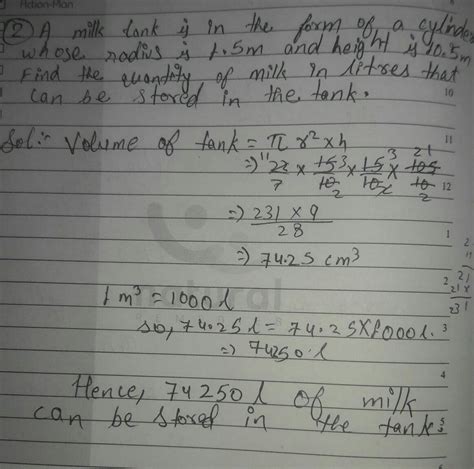 Action-Plan
② A milk tank is in the form of a cylinder
whose radius is 1.5m and height is 10.5m
Find the quantity of milk in litres that
can be stored in the tank.
10
Sol:- Volume of tank = π r² x h
11
=) 11 22/7 x 15 3/10 x 15 3/10 2 x 105 21/10 2
12
=) 231 x 9/28
1
=) 74.25 cm³
2
21 x
231
1 m³ = 1000 l
natural
so, 74.25 l = 74.25 X 1000 l.
3
=) 74250 l
4
Hence, 74250 l of milk
can be stored in the tank
5
6